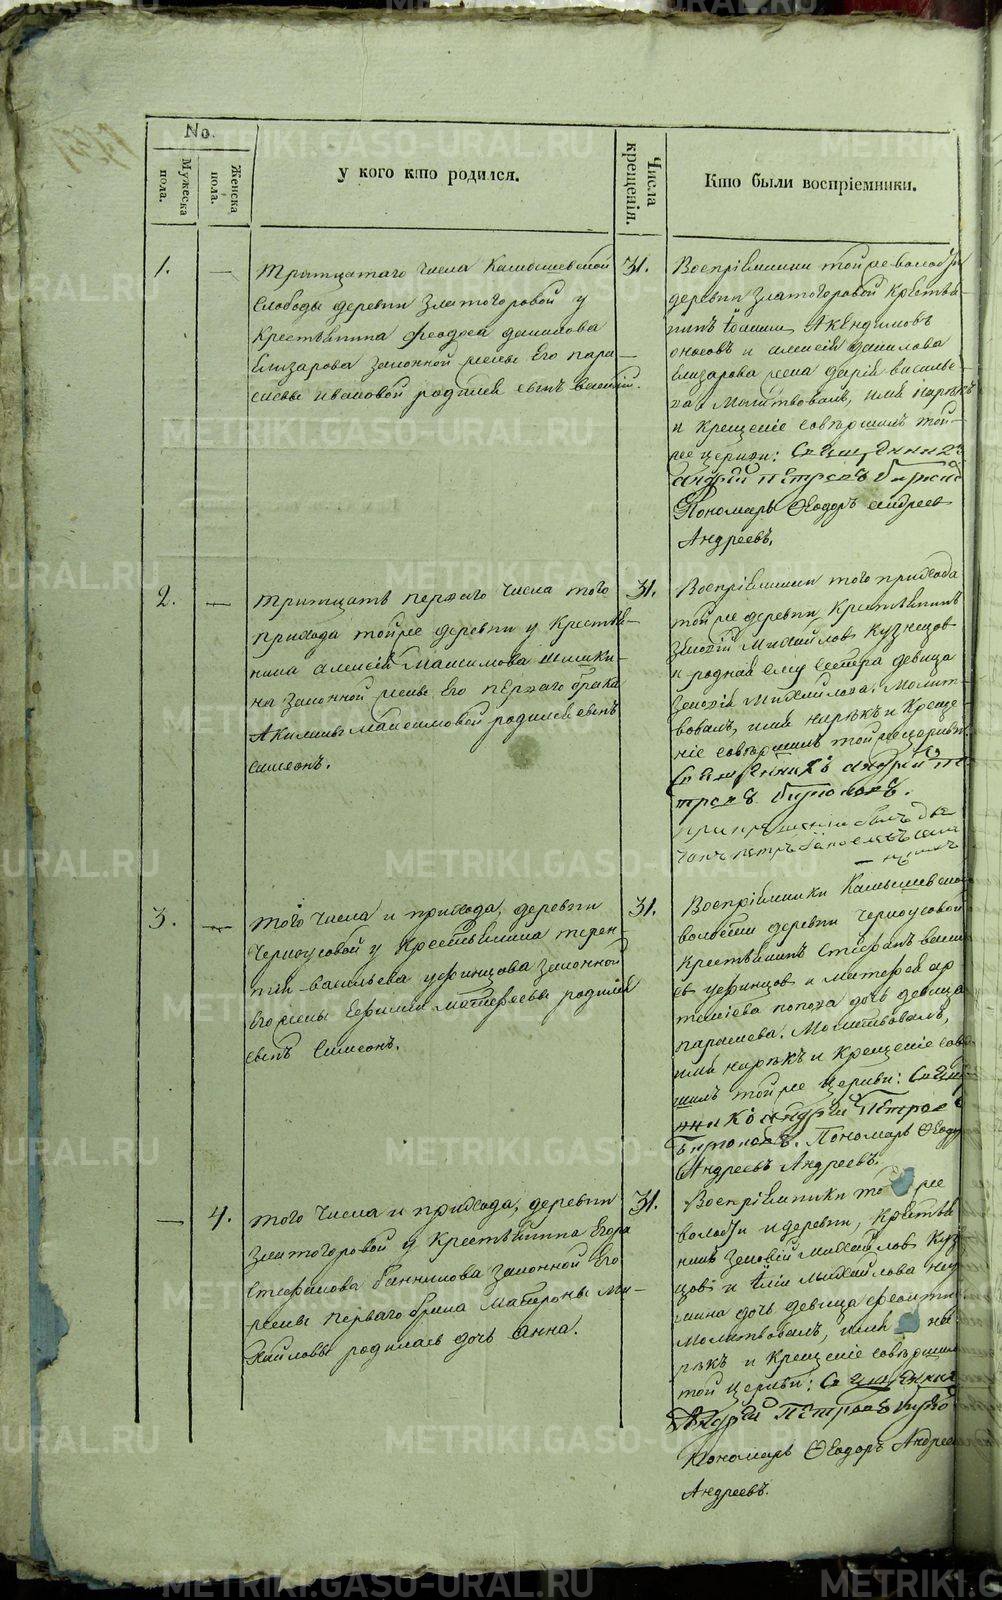 No.
Мужеска пола.
Женска пола.
у кого кто родился.
Числа крещенія.
Кто были воспріемники.
1.
—
Тритцатаго числа Камышевской
слободы деревни Златогоровой у
крестьянина Феодора Данилова
Елизарова законной жены Его Пара—
Ивановой родился сынъ
31.
Воспріемники тойже волости
деревни Златогоровой крестья—
нинъ Іоаннъ
и Алексѣя Данилова
Елизарова жена Дарія Василье—
ва. Молитвовалъ, имя нарѣкъ
и крещеніе совершилъ той—
же церкви: Священникъ
Андрей Петровъ
Пономарь Ѳеодоръ Андреевъ
Андреевъ.
2.
—
Тритцать перваго числа того
прихода тойже деревни у крестья—
нина Алексѣя Максимова
законной жены Его перваго брака
Акилины Максимовой родился сынъ
Симеонъ.
31.
Воспріемники того прихода
тойже деревни крестьянинъ
Зиновій Михайловъ Кузнецов
и родная ему сестра девица
Михайлова. Молит—
вовалъ, имя нарѣкъ и креще—
ніе совершилъ тойже церкви
Священникъ Андрей Пе—
тровъ Бирюковъ.
при крещеніи былъ
3.
—
Того числа и прихода, деревни
Черноусовой у крестьянина Терен—
тія Васильева Уфинцова законной
Его жены Евфиміи Матфеевы родился
сынъ Симеонъ.
31.
Воспріемники Камышевской
волости деревни Черноусовой
крестьянинъ Стефанъ
Уфинцов и Матфея Ар—
таміева Попова дочь девица
Параскева. Молитвовалъ,
имя нарѣкъ и крещеніе совер—
шилъ тойже церкви: Священ—
никъ Андрей Петровъ
Бирюковъ. Пономарь Ѳеодоръ
Андреевъ Андреевъ.
—
4.
Того числа и прихода, деревни
Златогоровой у крестьянина Егора
Стефанова Банникова законной Его
жены перваго брака Матроны Ми—
хайловы родилась дочь Анна.
31.
Воспріемники той же
волости и деревни, крестья—
нинъ Зеновій Михайловъ Куз—
цовъ и Иліи Михайлова
дочь девица
Молитвовалъ, имя на—
рѣкъ и крещеніе совершилъ
той церкви: Священникъ
Андрей Петровъ
Пономарь Ѳеодоръ Андреевъ
Андреевъ.
METRIKI.GASO-URAL.RU